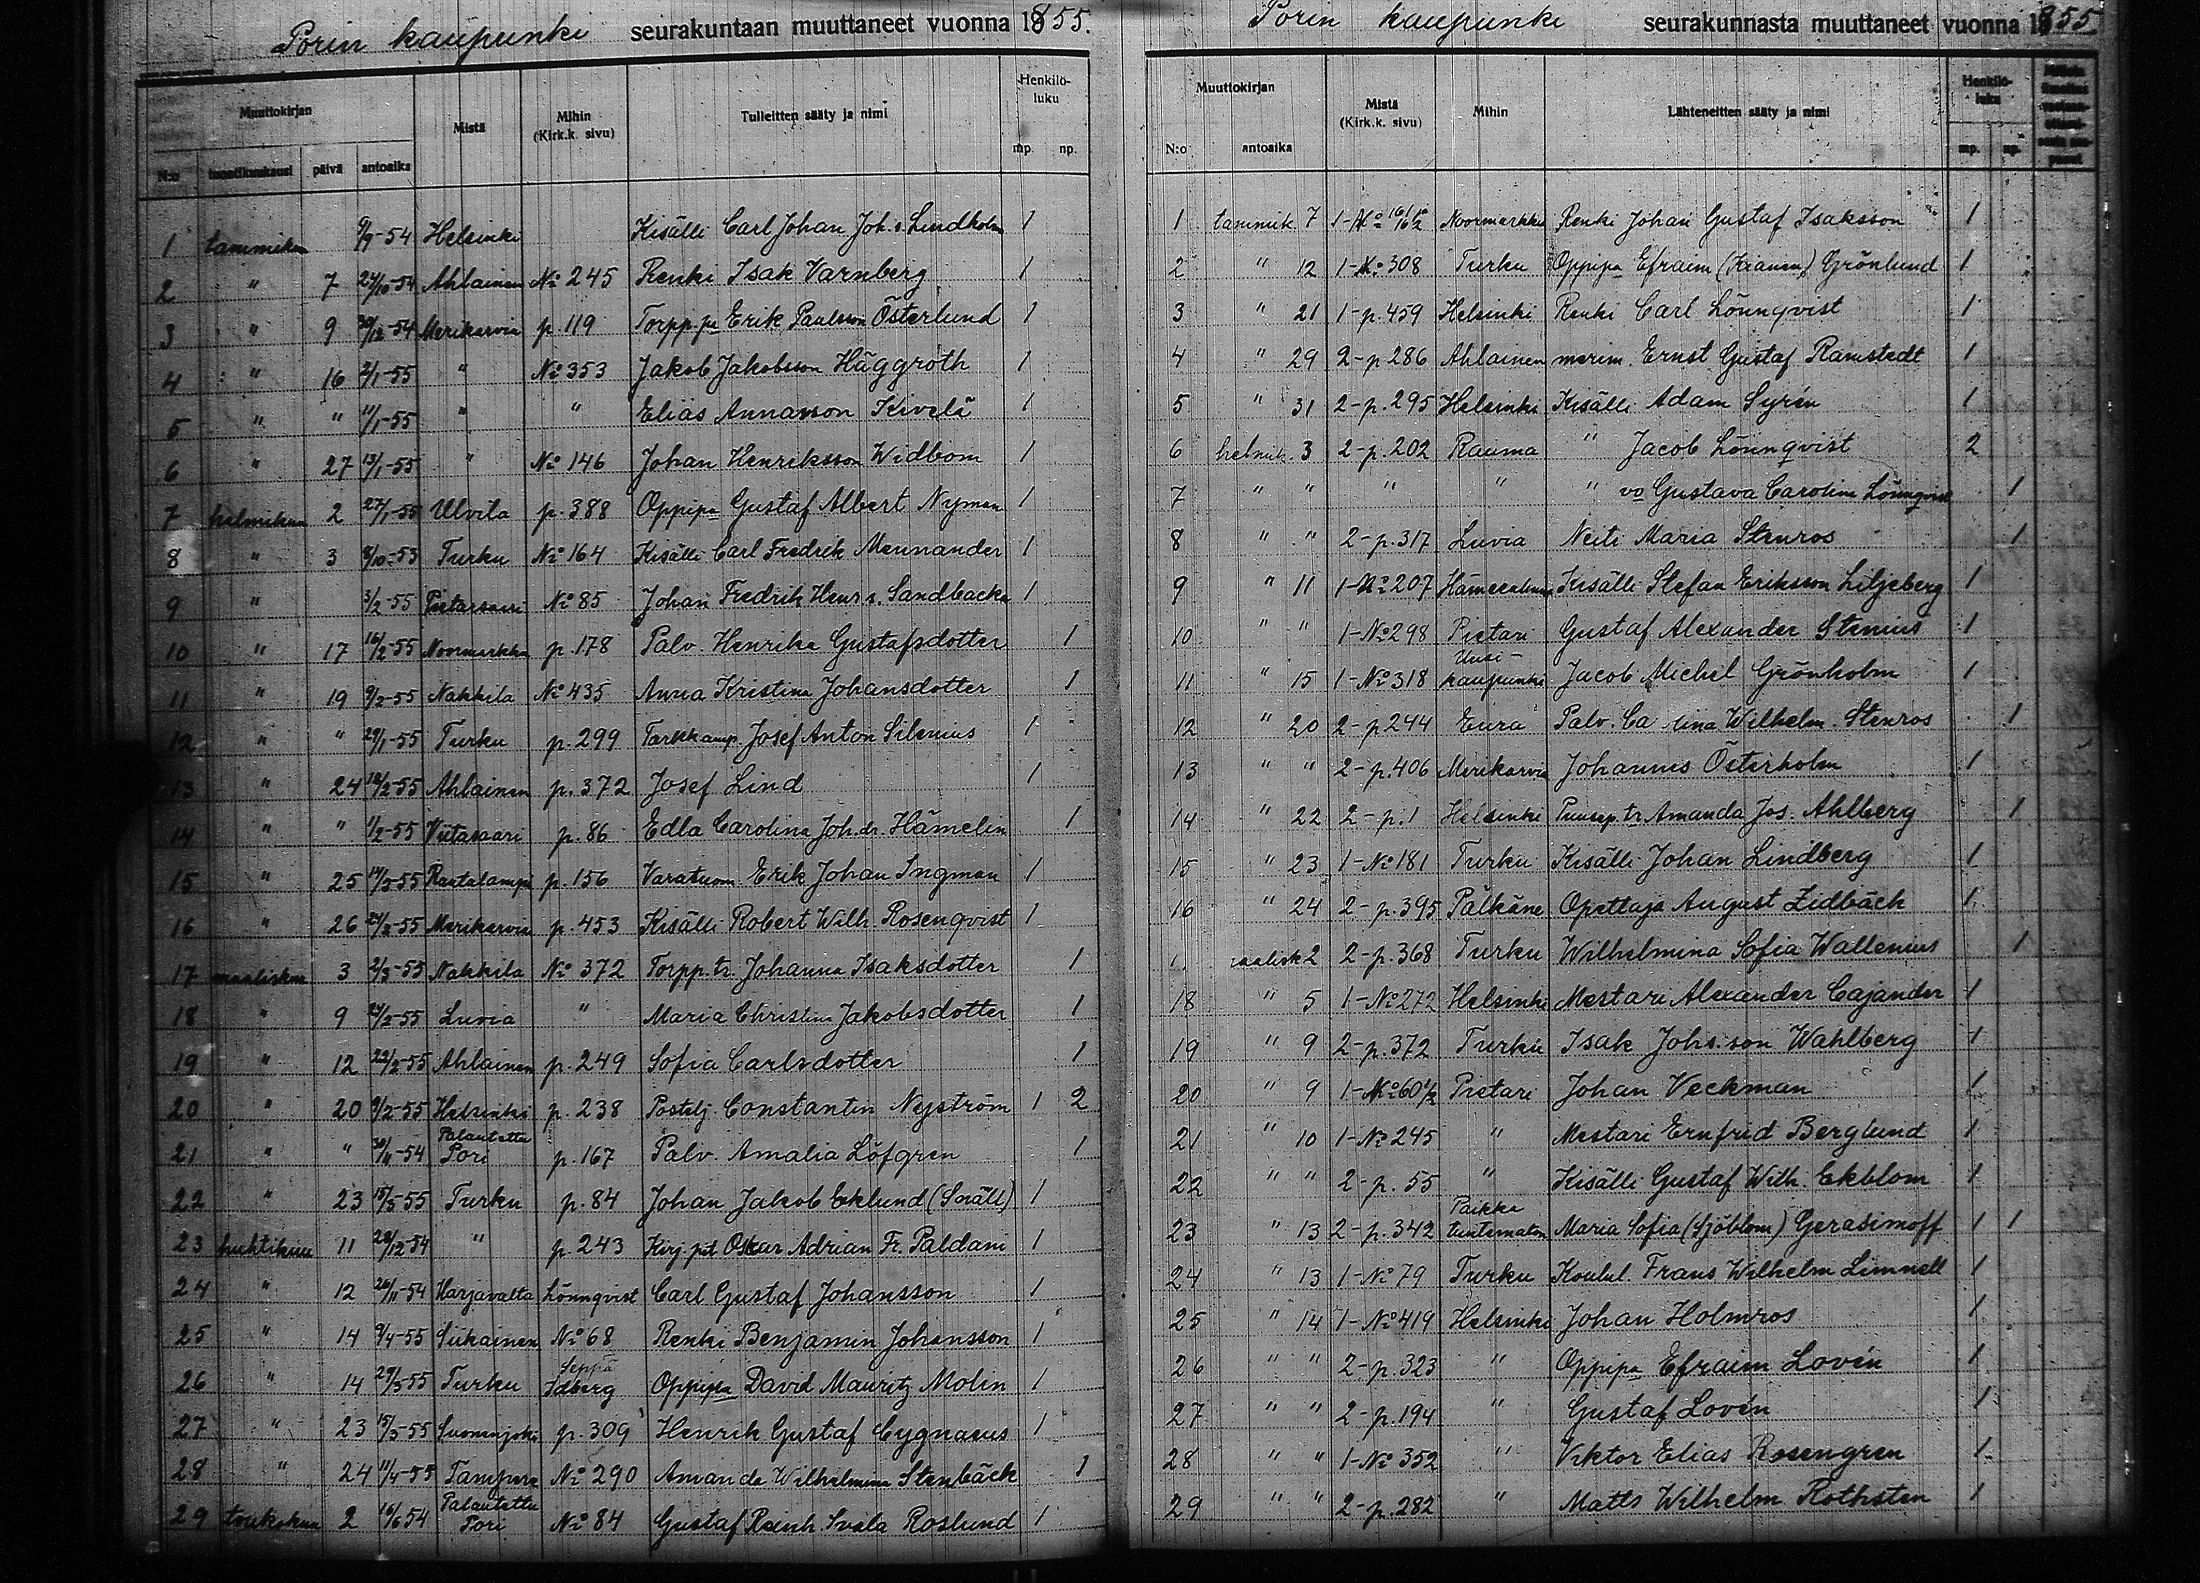 Porin kaupunki seurakuntaan muuttaneet vuonna 1855.
Muuttokirjan
Mistä
Mihin
(Kirk.k. sivu)
Tulleitten sääty ja nimi
Henkilö-
luku
N:o tuontikuukausi päivä antoaika mp. np.
1 tammikuu 9/9-54 Helsinki Kisälli Carl Johan Joh. s. Lindholm 1
2 " 7 24/10-54 Ahlainen No 245 Renki Isak Varnberg 1
3 " 9 30/12-54 Merikarvia p. 119 Torpp.pa Erik Paulsson Österlund 1
4 " 16 2/1-55 " No 353 Jakob Jakobsson Häggroth 1
5 " " 11/1-55 " " Elias Annasson Kivelä 1
6 " 27 13/1-55 " No 146 Johan Henriksson Widbom 1
7 helmikuu 2 27/1-55 Ulvila p. 388 Oppipa Gustaf Albert Nyman 1
8 " 3 8/10-53 Turku No 164 Kisälli Carl Fredrik Mennander 1
9 " 3/2-55 Pietarsaari No 85 Johan Fredrik Henr s. Sandbacka 1
10 " 17 16/2-55 Noormarkku p. 178 Palv. Henrika Gustafsdotter 1
11 " 19 9/2-55 Nakkila No 435 Anna Kristina Johansdotter 1
12 " " 29/1-55 Turku p. 299 Tarkkamp. Josef Anton Silenius 1
13 " 24 18/2-55 Ahlainen p. 372 Josef Lind 1
14 " " 1/2-55 Viitasaari p. 86 Edla Carolina Joh.dr. Hämelin 1
15 " 25 14/2-55 Rautalampi p. 156 Varatuom. Erik Johan Ingman 1
16 " 26 24/2-55 Merikarvia p. 453 Kisälli Robert Wilh. Rosenqvist 1
17 maaliskuu 3 2/3-55 Nakkila No 372 Torpp.tr. Johanna Isaksdotter 1
18 " 9 24/2-55 Luvia " Maria Christina Jakobsdotter 1
19 " 12 22/2-55 Ahlainen p. 249 Sofia Carlsdotter 1
20 " 20 9/2-55 Helsinki p. 238 Postilj. Constantin Nyström 1 2
Palautettu
21 " " 30/11-54 Pori p. 167 Palv. Amalia Löfgren 1
22 " 23 15/3-55 Turku p. 84 Johan Jakob Eklund (Snäll) 1
23 huhtikuu 11 28/12-54 " p. 243 Kirj.pit. Oskar Adrian Fr. Paldani 1
24 " 12 26/11-54 Harjavalta Lönnqvist Carl Gustaf Johansson 1
25 " 14 9/4-55 Siikainen No 68 Renki Benjamin Johansson 1
Seppä
26 " 14 29/3-55 Turku Idberg Oppipa David Mauritz Molin 1
27 " 23 15/3-55 Suomenjoki p. 309 Henrik Gustaf Cygnaeus 1
28 " 24 11/4-55 Tampere No 290 Amanda Wilhelmina Stenbäck 1
Palautettu
29 toukokuu 2 16/6 54 Pori No 84 Gustaf Reinh Svala Roslund 1
Porin kaupunki seurakunnasta muuttaneet vuonna 1855
Muuttokirjan
Mistä
(Kirk.k. sivu)
Mihin
Lähteneitten sääty ja nimi
Henkilö-
luku
N:o antoaika mp. np.
1 tammik. 7 1-No Noormarkku Renki Johan Gustaf Isaksson 1
2 " 12 1-No 308 Turku Oppipa Efraim Grönlund 1
3 " 21 1-p. 459 Helsinki Renki Carl Lönnqvist 1
4 " 29 2-p 286 Ahlainen merim. Ernst Gustaf Ramstedt 1
5 " 31 2-p. 295 Helsinki Kisälli Adam Syrén 1
6 helmik. 3 2-p. 202 Rauma " Jacob Lönnqvist 2
7 " " " " " vo Gustava Carolina Lönnqvist 1
8 " " 2-p. 317 Luvia Neiti Maria Stenros 1
9 " 11 1-No 207 Hämeenlinna Kisälli Stefan Eriksson Liljeberg 1
10 " " 1-No 298 Pietari Gustaf Alexander Stenius 1
Uusi-
11 " 15 1-No 318 kaupunki Jacob Michel Grönholm 1
12 " 20 2-p 244 Eura Palv. Ca lina Wilhelm. Stenros 1
13 " " 2-p. 406 Merikarvia Johannes Österholm 1
14 " 22 2-p. 1 Helsinki Puusep. tr. Amanda Jos. Ahlberg 1
15 " 23 1-No 181 Turku Kisälli Johan Lindberg 1
16 " 24 2-p. 395 Pälkäne Opettaja August Zidbäck 1
1 aalisk 2 2-p. 368 Turku Wilhelmina Sofia Wallenius 1
18 " 5 1-No 272 Helsinki Mestari Alexander Cajander 1
19 " 9 2-p. 372 Turku Isak Johs.son Wahlberg 1
20 " 9 1-No 60 1/2 Pietari Johan Veckman 1
21 " 10 1-No 245 " Mestari Ernfrid Berglund 1
22 " " 2-p. 55 " Kisälli Gustaf Wilh. Ekblom 1
Paikka
23 " 13 2-p. 342 tuntematon Maria Sofia (Sjöblom) Gerasimoff 1 1
24 " 13 1-No 79 Turku Koulul. Frans Wilhelm Limnell 1
25 " 14 1-No 419 Helsinki Johan Holmros 1
26 " " 2-p. 323 " Oppipa Efraim Lovén 1
27 " " 2-p. 194 " Gustaf Lovén 1
28 " " 1-No 352 " Viktor Elias Rosengren 1
29 " " 2-p. 282 " Matts Wilhelm Rothsten 1